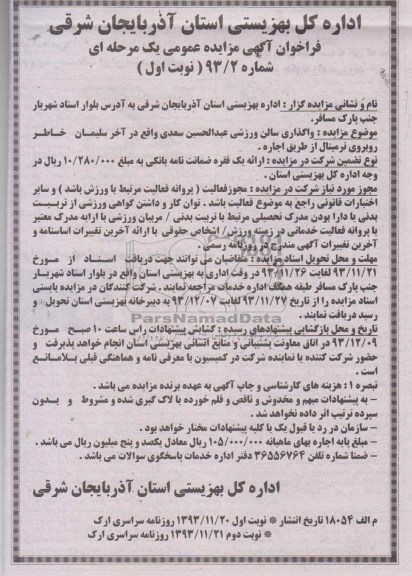 اداره کل بهزیستی استان آذربایجان شرقی
فراخوان آگهی مزایده عمومی یک مرحله ای
شماره ۹۳/۲ ( نوبت اول )
نام و نشانی مزایده گزار : اداره بهزیستی استان آذربایجان شرقی به آدرس بلوار استاد شهریار
جنب پارک مسافر.
موضوع مزایده : واگذاری سالن ورزشی عبدالحسین سعدی واقع در آخر سلیمان خاطر
روبروی ترمینال از طریق اجاره .
نوع تضمین شرکت در مزایده : ارائه یک فقره ضمانت نامه بانکی به مبلغ ۱۰/۲۸۰/۰۰۰ ریال در
وجه اداره کل بهزیستی استان .
مجوز مورد نیاز شرکت در مزایده : مجوز فعالیت ( پروانه فعالیت مرتبط با ورزش باشد ) و سایر
اختیارات قانونی راجع به موضوع فعالیت باشد . توان کار و داشتن گواهی ورزشی از تربیت
بدنی یا دارا بودن مدرک تحصیلی مرتبط با تربیت بدنی / مربیان ورزشی با ارایه مدرک معتبر
یا پروانه فعالیت خدماتی در زمینه ورزش/ اشخاص حقوقی با ارائه آخرین تغییرات اساسنامه و
آخرین تغییرات آگهی مندرج در روزنامه رسمی.
مهلت و محل تحویل اسناد مزایده : متقاضیان می توانند جهت دریافت اسناد از مورخ
۹۳/۱۱/۲۱ لغایت ۹۳/۱۱/۲۶ در وقت اداری به بهزیستی استان واقع در بلوار استاد شهریار
جنب پارک مسافر طبقه همکف اداره خدمات مراجعه نمایند . شرکت کنندگان در مزایده بایستی
اسناد مزایده را از تاریخ ۹۳/۱۱/۲۷ لغایت ۹۳/۱۲/۰۷ به دبیرخانه بهزیستی استان تحویل و
رسید دریافت نمایند .
تاریخ و محل بازگشایی پیشنهادهای رسیده : گشایش پیشنهادات راس ساعت ۱۰ صبح مورخ
۹۳/۱۲/۰۹ در اتاق معاونت پشتیبانی و منابع انسانی بهزیستی استان انجام خواهد پذیرفت و
حضور شرکت کننده یا نماینده شرکت در کمیسیون با معرفی نامه و هماهنگی قبلی بلامانع
است :
تبصره ۱ : هزینه های کارشناسی و چاپ آگهی به عهده برنده مزایده می باشد .
- به پیشنهادات مبهم و مخدوش و ناقص و قلم خورده یا لاک گیری شده و مشروط و بدون
سپرده ترتیب اثر داده نخواهد شد .
- سازمان در رد یا قبول یک یا کلیه پیشنهادات مختار خواهد بود .
- مبلغ پایه اجاره بهای ماهیانه ۱۰۵/۰۰۰/۰۰۰ ریال معادل یکصد و پنج میلیون ریال می باشد .
- ضمنا شماره تلفن ۳۶۵۵۶۷۶۴ دفتر اداره خدمات پاسخگوی سوالات می باشد .
اداره کل بهزیستی استان آذربایجان شرقی
م الف ۱۸۰۵۴ تاریخ انتشار * نوبت اول ۱۳۹۳/۱۱/۲۰ روزنامه سراسری ارک
* نوبت دوم ۱۳۹۳/۱۱/۲۱ روزنامه سراسری ارک
ParsNamadData